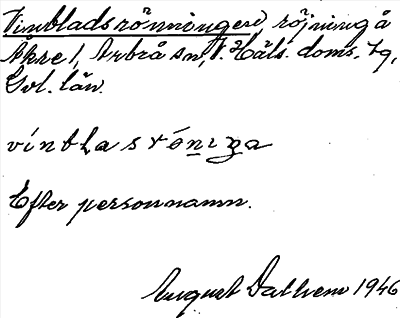 Vimbladsrönningen, röjning å
Åkre 1, Arbrå sn, V. Häls. doms. tg,
Gvl. län.
vínblasrónıga
Efter personnamn.
August Dalhem 1946